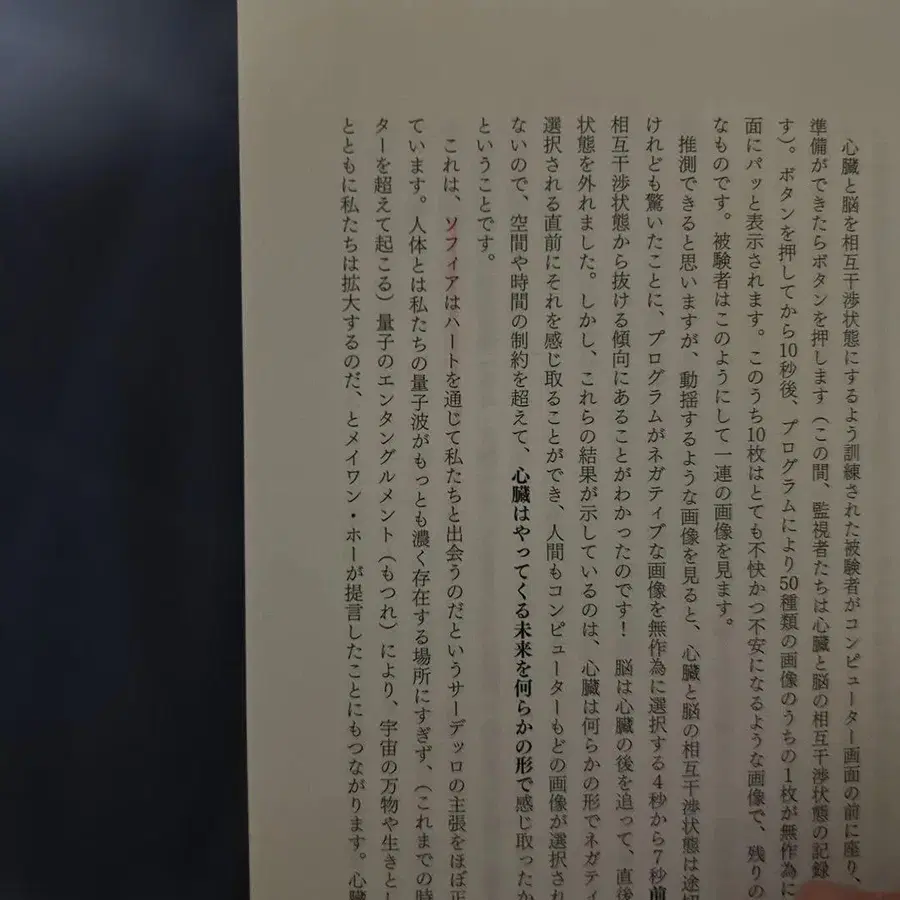 心臓と脳を相互干渉状態にするよう訓練された被験者がコンピューター画面の前に座り、
準備ができたらボタンを押します（この間、監視者たちは心臓と脳の相互干渉状態の記録
す）。ボタンを押してから10秒後、プログラムにより50種類の画像のうちの1枚が無作為に
面にパッと表示されます。このうち10枚はとても不快かつ不安になるような画像で、残りの
なものです。被験者はこのようにして一連の画像を見ます。
推測できると思いますが、動揺するような画像を見ると、心臓と脳の相互干渉状態は途切
けれども驚いたことに、プログラムがネガティブな画像を無作為に選択する4秒から7秒前
相互干渉状態から抜ける傾向にあることがわかったのです！　脳は心臓の後を追って、直後
状態を外れました。しかし、これらの結果が示しているのは、心臓は何らかの形でネガティ
選択される直前にそれを感じ取ることができ、人間もコンピューターもどの画像が選択され
ないので、空間や時間の制約を超えて、心臓はやってくる未来を何らかの形で感じ取ったか
ということです。
これは、ソフィアはハートを通じて私たちと出会うのだというサーデッロの主張をほぼ正
ています。人体とは私たちの量子波がもっとも濃く存在する場所にすぎず、（これまでの時
ターを超えて起こる）量子のエンタングルメント（もつれ）により、宇宙の万物や生きとし
とともに私たちは拡大するのだ、とメイワン・ホーが提言したことにもつながります。心臓